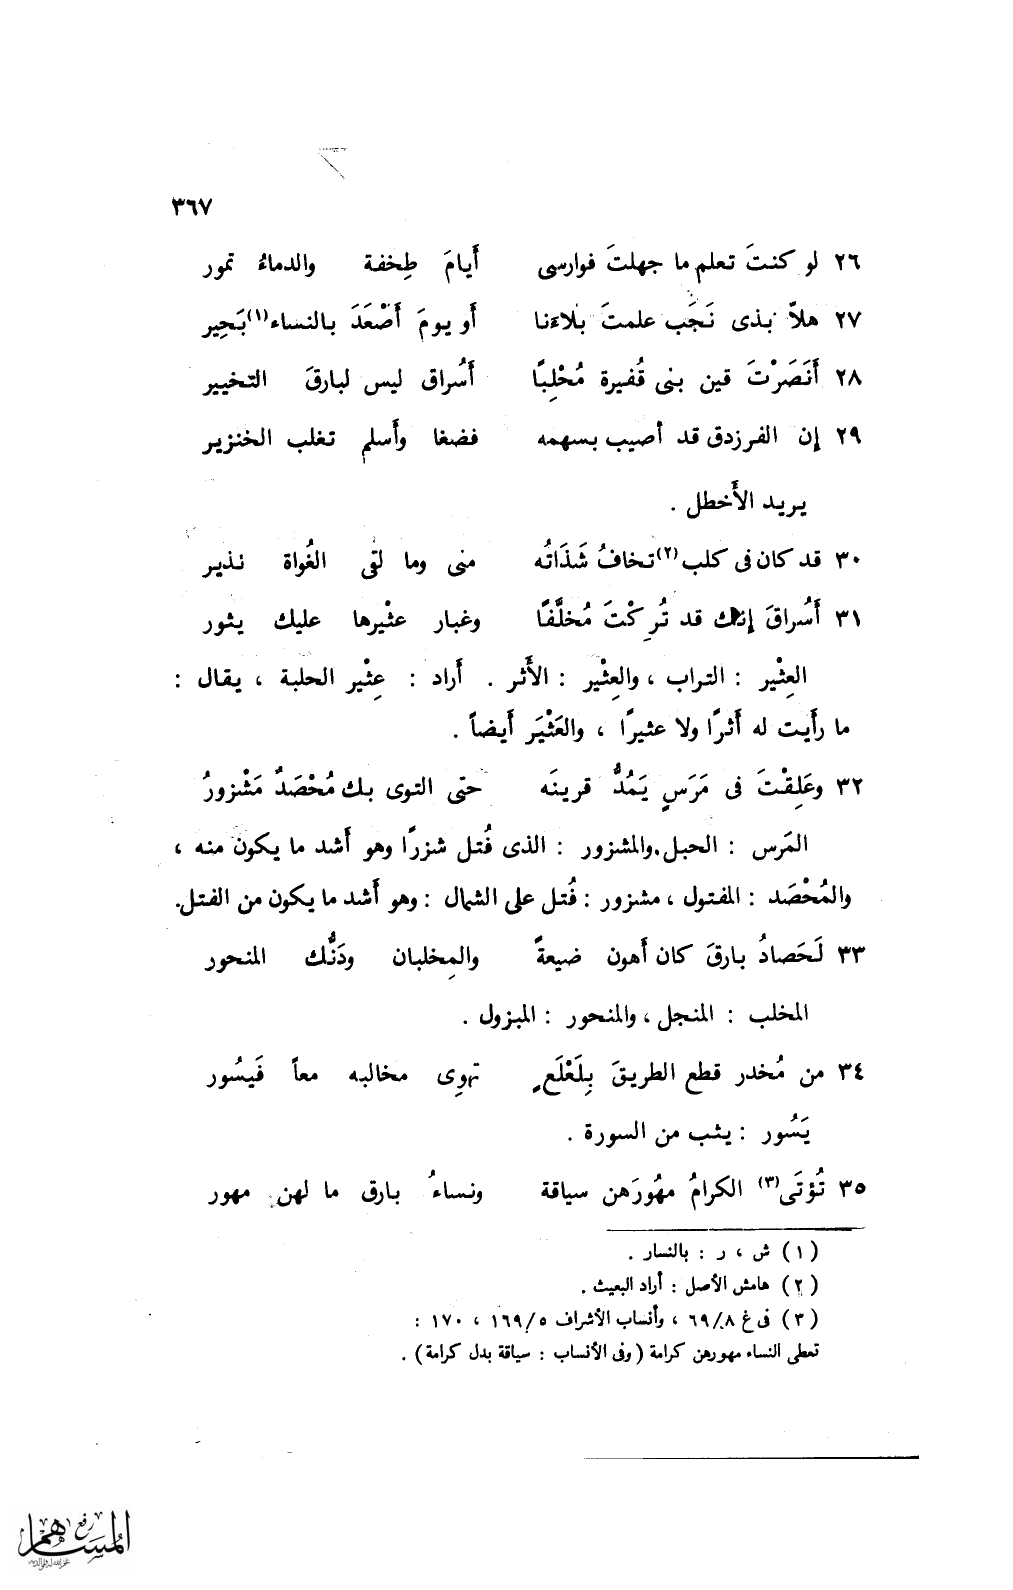 ٣٦٧
٢٦ لو كنتَ تعلم ما جهلتَ فوارسى أيامَ طِخفة والدماءُ تمور
٢٧ هلاّ بذى نَجَب علمتَ بلاءَنا أو يومَ أَصْعَدَ بالنساء(١) بَحِير
٢٨ أَنَصَرْتَ قين بنى قُفيرة مُحْلِبًا أَسُراق ليس لبارقَ التخيير
٢٩ إن الفرزدق قد أصيب بسهمه فضغا وأَسلم تغلب الخنزير
يريد الأَخطل .
٣٠ قد كان فى كلب(٢) تخافُ شَذَاتُه منى وما لقى الغُواة نذير
٣١ أَسُراقَ إنك قد تُرِكْتَ مُخلَّفًا وغبار عثْيرها عليك يثور
العِثْير : التراب ، والعِثْير : الأَثر . أَراد : عِثْير الحلبة ، يقال :
ما رأَيت له أَثرًا ولا عثيرًا ، والعَثْيَر أَيضاً .
٣٢ وعَلِقْتَ فى مَرَسٍ يَمُدُّ قرينَه حتى التوى بك مُحْصَدٌ مَشْزورُ
المَرس : الحبل . والمشزور : الذى فُتل شزرًا وهو أَشد ما يكون منه ،
والمُحْصَد : المفتول ، مشزور : فُتل على الشمال : وهو أَشد ما يكون من الفتل .
٣٣ لَحَصادُ بارقَ كان أَهون ضيعةً والمِخلبان ودَنُّك المنحور
المخلب : المنجل ، والمنحور : المبزول .
٣٤ من مُخدر قطع الطريقَ بِلَعْلَعٍ تهوِى مخالبه معاً فَيسُور
يَسُور : يثب من السورة .
٣٥ تُؤتَى(٣) الكرامُ مهُورَهن سياقة ونساءُ بارق ما لهن مهور
( ١ ) ش ، ر : بالنسار .
( ٢ ) هامش الأصل : أراد البعيث .
( ٣ ) فى غ ٨/ ٦٩ ، وأنساب الأشراف ٥/ ١٦٩ ، ١٧٠ :
تعطى النساء مهورهن كرامة ( وفى الأنساب : سياقة بدل كرامة ) .
رفع
المساهم